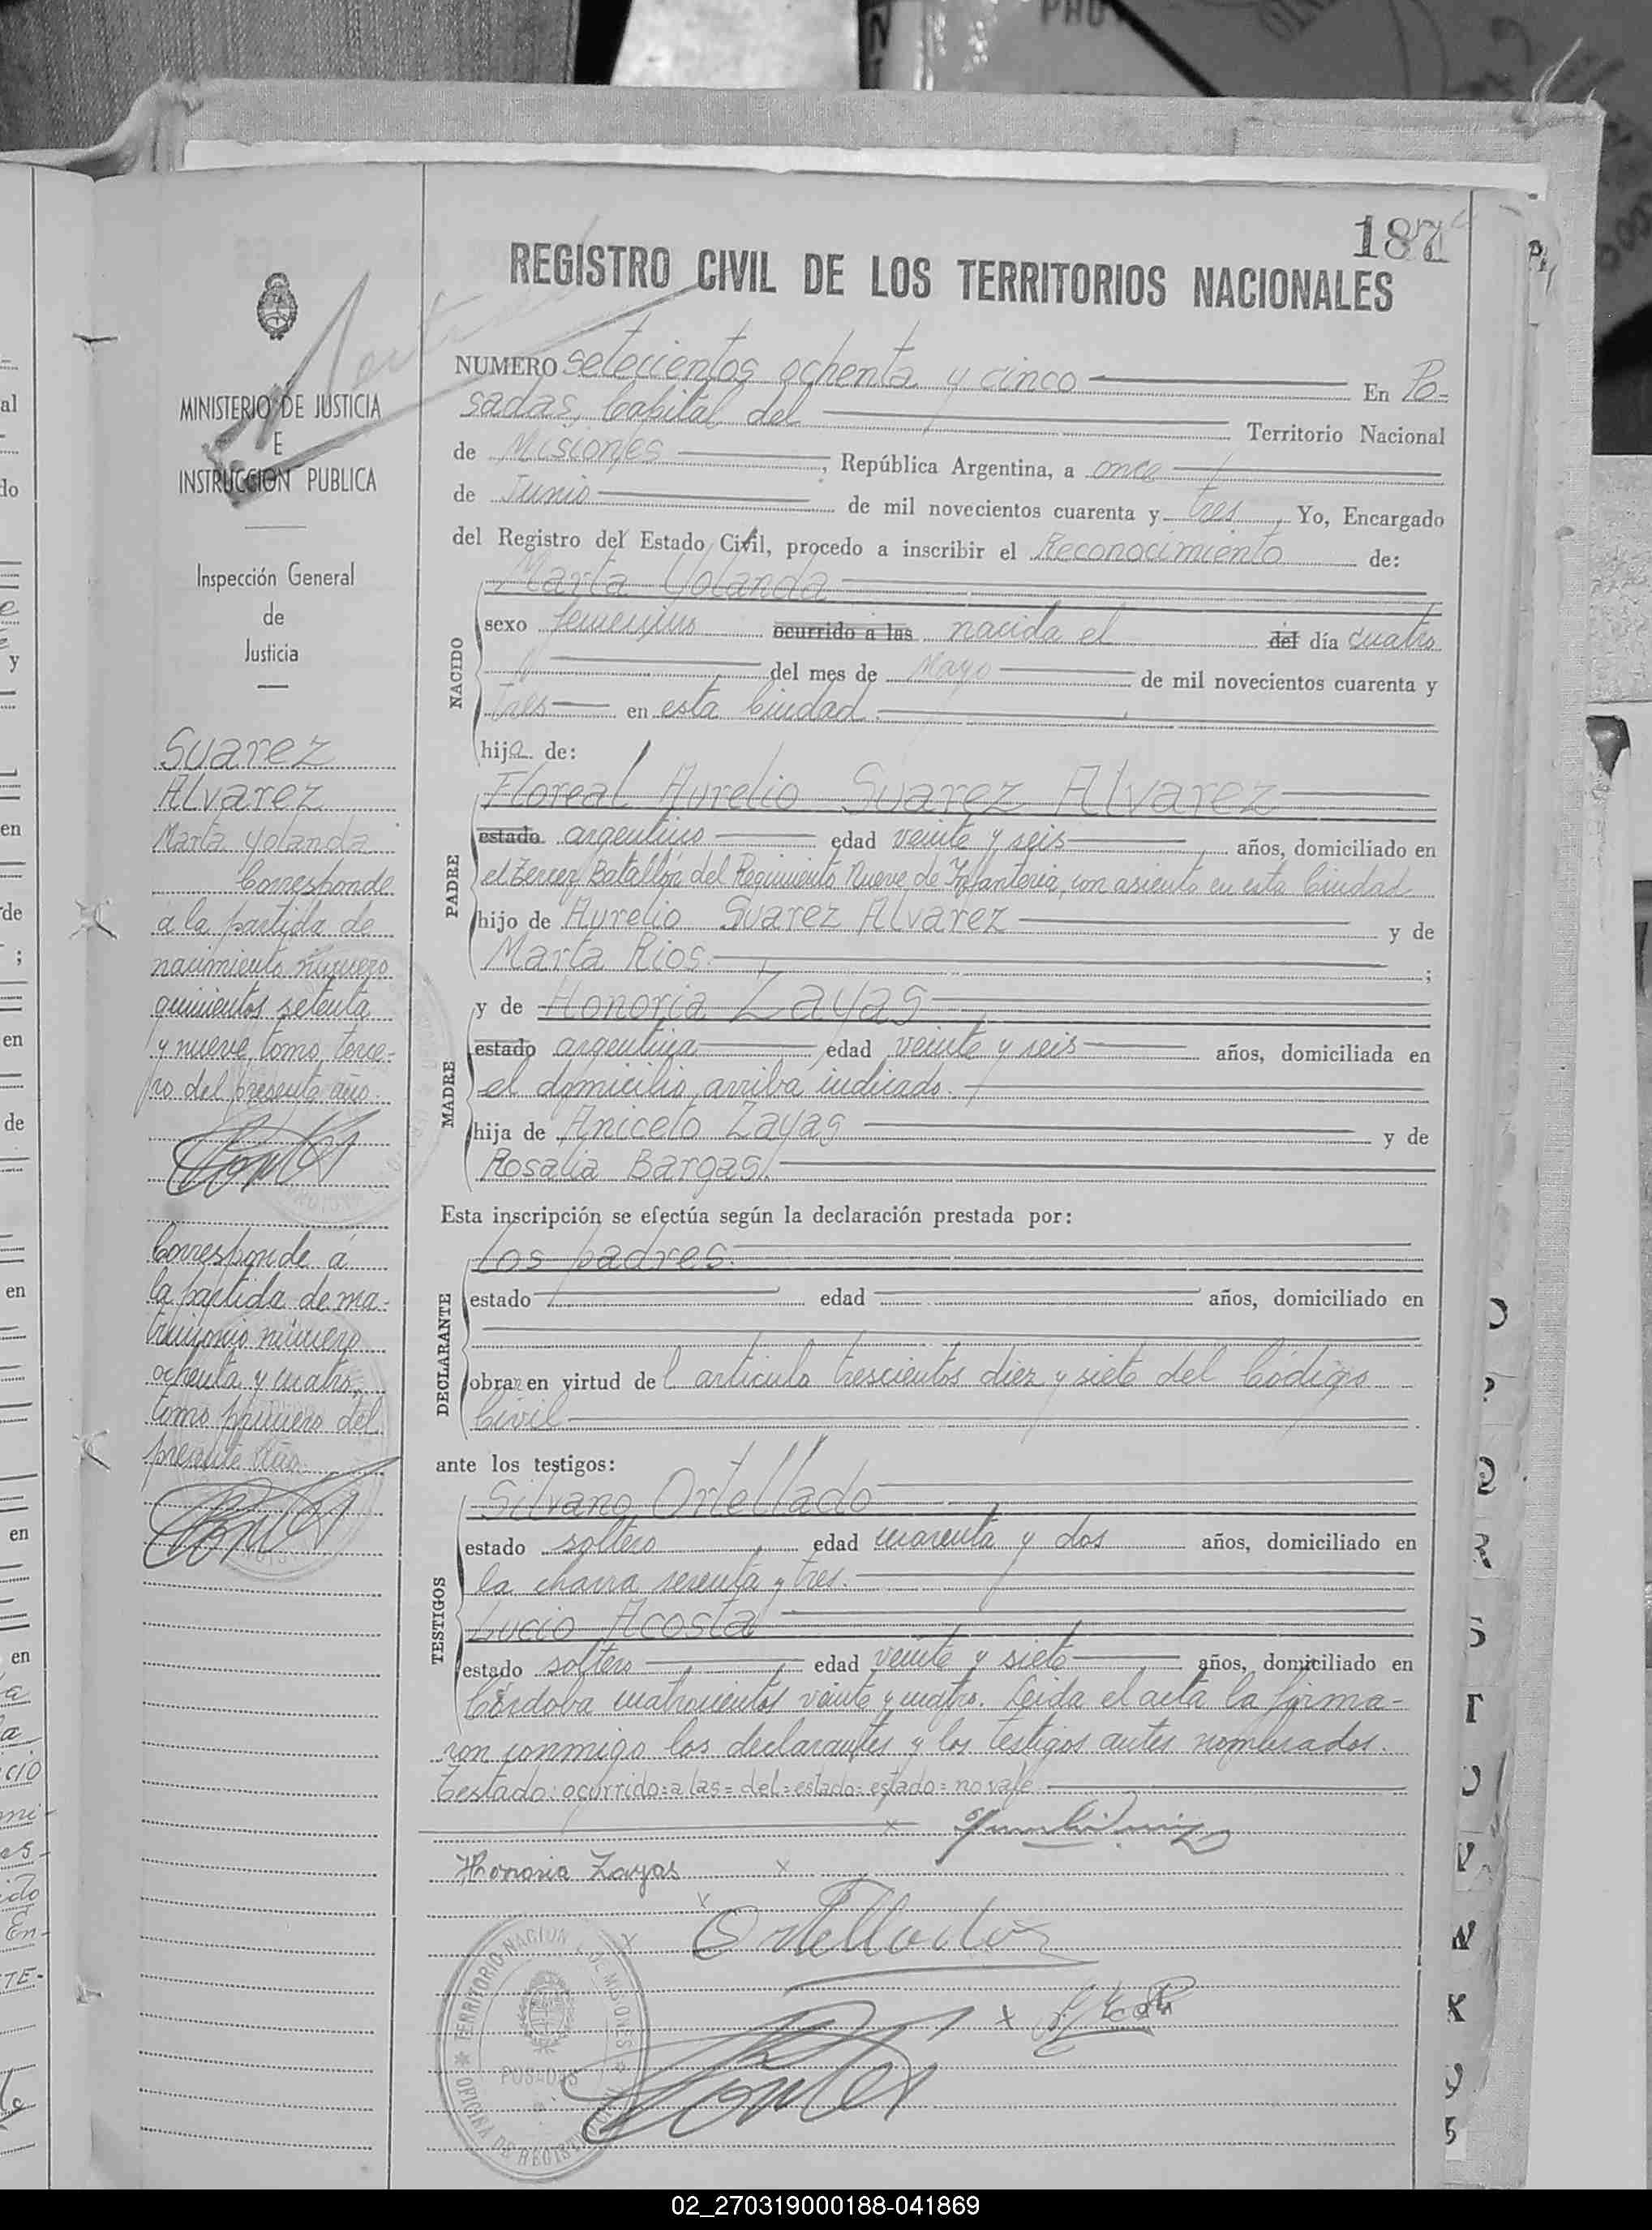 187
REGISTRO CIVIL DE LOS TERRITORIOS NACIONALES
MINISTERIO DE JUSTICIA
E
INSTRUCCION PUBLICA
Inspección General
de
Justicia
Suarez
Alvarez
Marta Yolanda
Corresponde
a la partida de
nacimiento número
quinientos setenta
y nueve, tomo terce-
ro del presente año.
Corresponde á
la partida de ma-
trimonio número
ochenta y cuatro,
tomo primero del
presente año.
NUMERO setecientos ochenta y cinco En Po-
sadas, Capital del Territorio Nacional
de Misiones, República Argentina, a once
de Junio de mil novecientos cuarenta y tres, Yo, Encargado
del Registro del Estado Civil, procedo a inscribir el Reconocimiento de:
Marta Yolanda
NACIDO
sexo femenino ocurrido a las nacida el del día cuatro
del mes de Mayo de mil novecientos cuarenta y
tres en esta Ciudad.
hija de:
Floreal Aurelio Suarez Alvarez
PADRE
estado argentino edad veinte y seis años, domiciliado en
el Tercer Batallón del Regimiento Nueve de Infanteria, con asiento en esta Ciudad
hijo de Aurelio Suarez Alvarez y de
Marta Rios. ;
y de Honoria Zayas
MADRE
estado argentina edad veinte y seis años, domiciliada en
el domicilio arriba indicado.
hija de Aniceto Zayas y de
Rosalia Bargas.
Esta inscripción se efectúa según la declaración prestada por:
Los padres.
DECLARANTE
estado edad años, domiciliado en
obran en virtud del articulo trescientos diez y siete del Código
Civil
ante los testigos:
Silvano Ortellado
TESTIGOS
estado soltero edad cuarenta y dos años, domiciliado en
la chacra sesenta y tres.
Lucio Acosta
estado soltero edad veinte y siete años, domiciliado en
Córdoba cuatrocientos veinte y cuatro. Leida el acta la firma-
ron conmigo los declarantes y los testigos antes nombrados.
Testado: ocurrido=a las=del=estado=estado=no vale.
Honoria Zayas
Ortellado
TERRITORIO NACIONAL DE MISIONES
POSADAS
02_270319000188-041869